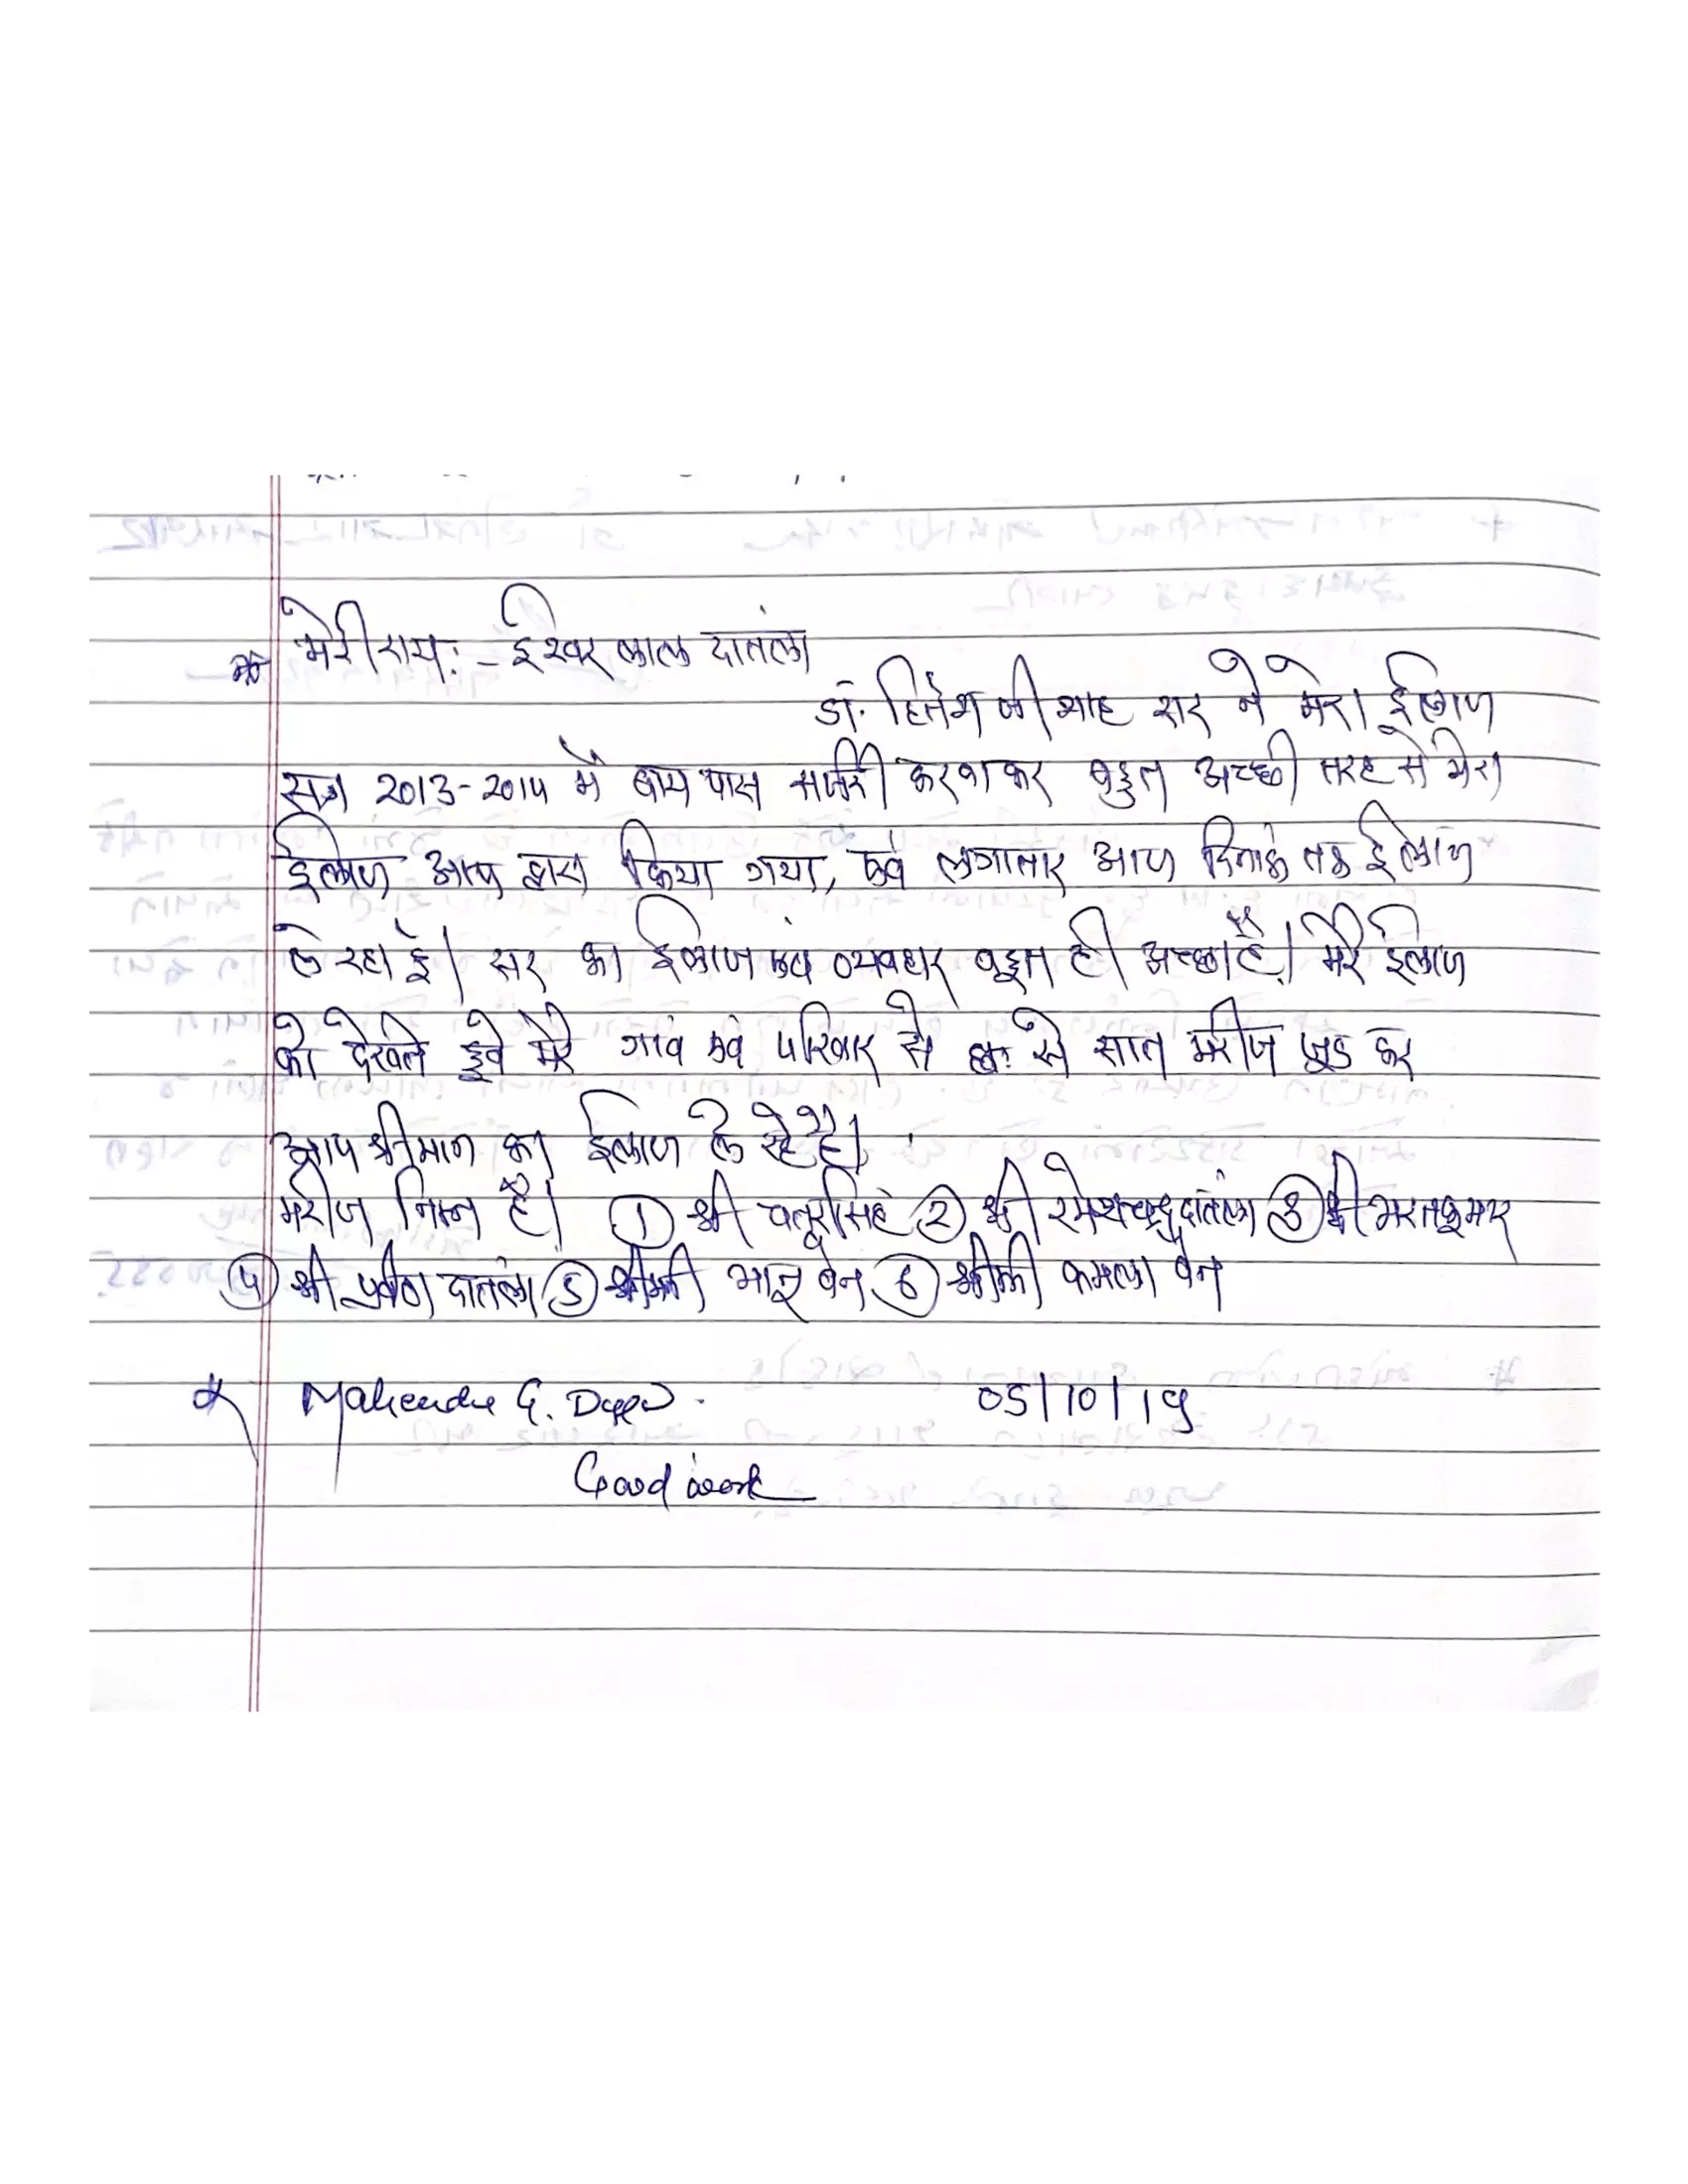 * मेरी राय: - ईश्वर लाल दांतला
डॉ. हितेश जी शाह सर ने मेरा ईलाज
सन 2013-2014 में बायपास सर्जरी करवाकर बहुत अच्छी तरह से मेरा
ईलाज आप द्वारा किया गया, एवं लगातार आज दिनांक तक ईलाज
ले रहा हूँ। सर का ईलाज एवं व्यवहार बहुत ही अच्छा है। मेरे ईलाज
को देखते हुवे मेरे गांव एवं परिवार से छः से सात मरीज जुड कर
आप श्रीमान का ईलाज ले रहे है।
मरीज निम्न है। ① श्री चतुरसिंह ② श्री रमेशचन्द्र दांतला ③ श्री भरतकुमार
④ श्री प्रवीण दांतला ⑤ श्रीमती भानु बेन ⑥ श्रीमती कमला बेन
* Mahendra G. 05/10/19
Good work